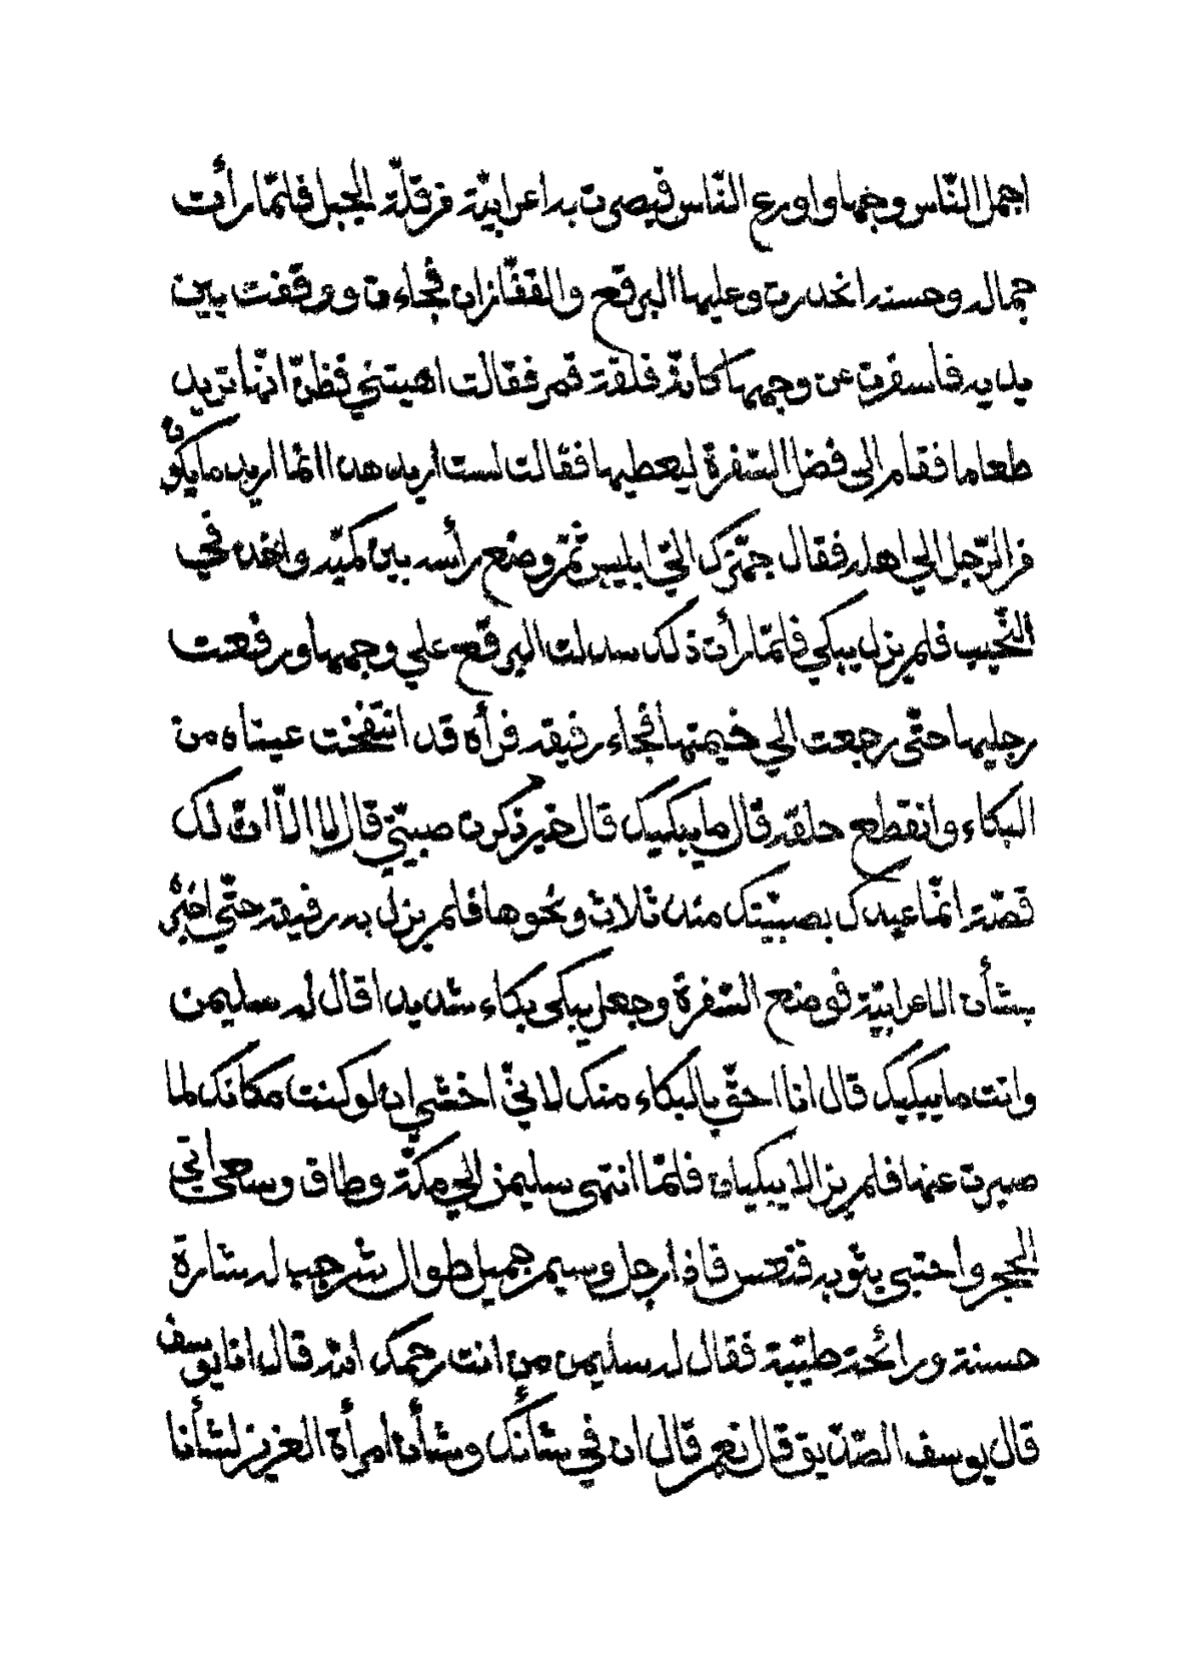 اجمل النّاس وجها واورع النّاس فبصرت به اعرابيّة من قلّة الجبل فلمّا رأت
جماله وحسنه انحدرت وعليها البرقع والقفّازان فجاءت ووقفت بين
يديه فاسفرت عن وجهها كانّه فلقة قمر فقالت اهبتني فظنّ انّها تريد
طعاما فقام الى فضل السّفرة ليعطيها فقالت لست اريد هذا انّما اريد ما يكون
من الرّجل الي اهله فقال جهّزك اليّ ابليس ثمّ وضع رأسه بين كمّيه واخذ في
النّحيب فلم يزل يبكي فلمّا رأت ذلك سدلت البرقع علي وجهها ورفعت
رجليها حتّى رجعت الي خيمتها فجاء رفيقه فرأه قد انتفخت عيناه من
البكاء وانقطع حلقه قال ما يبكيك قال خير ذكرت صبيتي قال لا الّا انّ لك
قصّة انّما عهدك بصبيّتك منذ ثلاث ونحوها فلم يزل به رفيقه حتّي اخبره
بشأن الاعرابيّة فوضع السّفرة وجعل يبكي بكاء شديدا قال له سليمن
وانت ما يبكيك قال انا احقّ بالبكاء منك لانّي اخشي ان لو كنت مكانك لما
صبرت عنها فلم يزالا يبكيان فلمّا انتهى سليمن الي مكّة وطاف وسعى اتي
الحجر واحتبي بثوبه فنعس فاذا رجل وسيم جميل طوال شرجب له شارة
حسنة ورائحة طيّبة فقال له سليمن من انت رحمك الله قال انا يوسف
قال يوسف الصّدّيق قال نعم قال ان في شأنك وشأن امرأة العزيز لشأنا